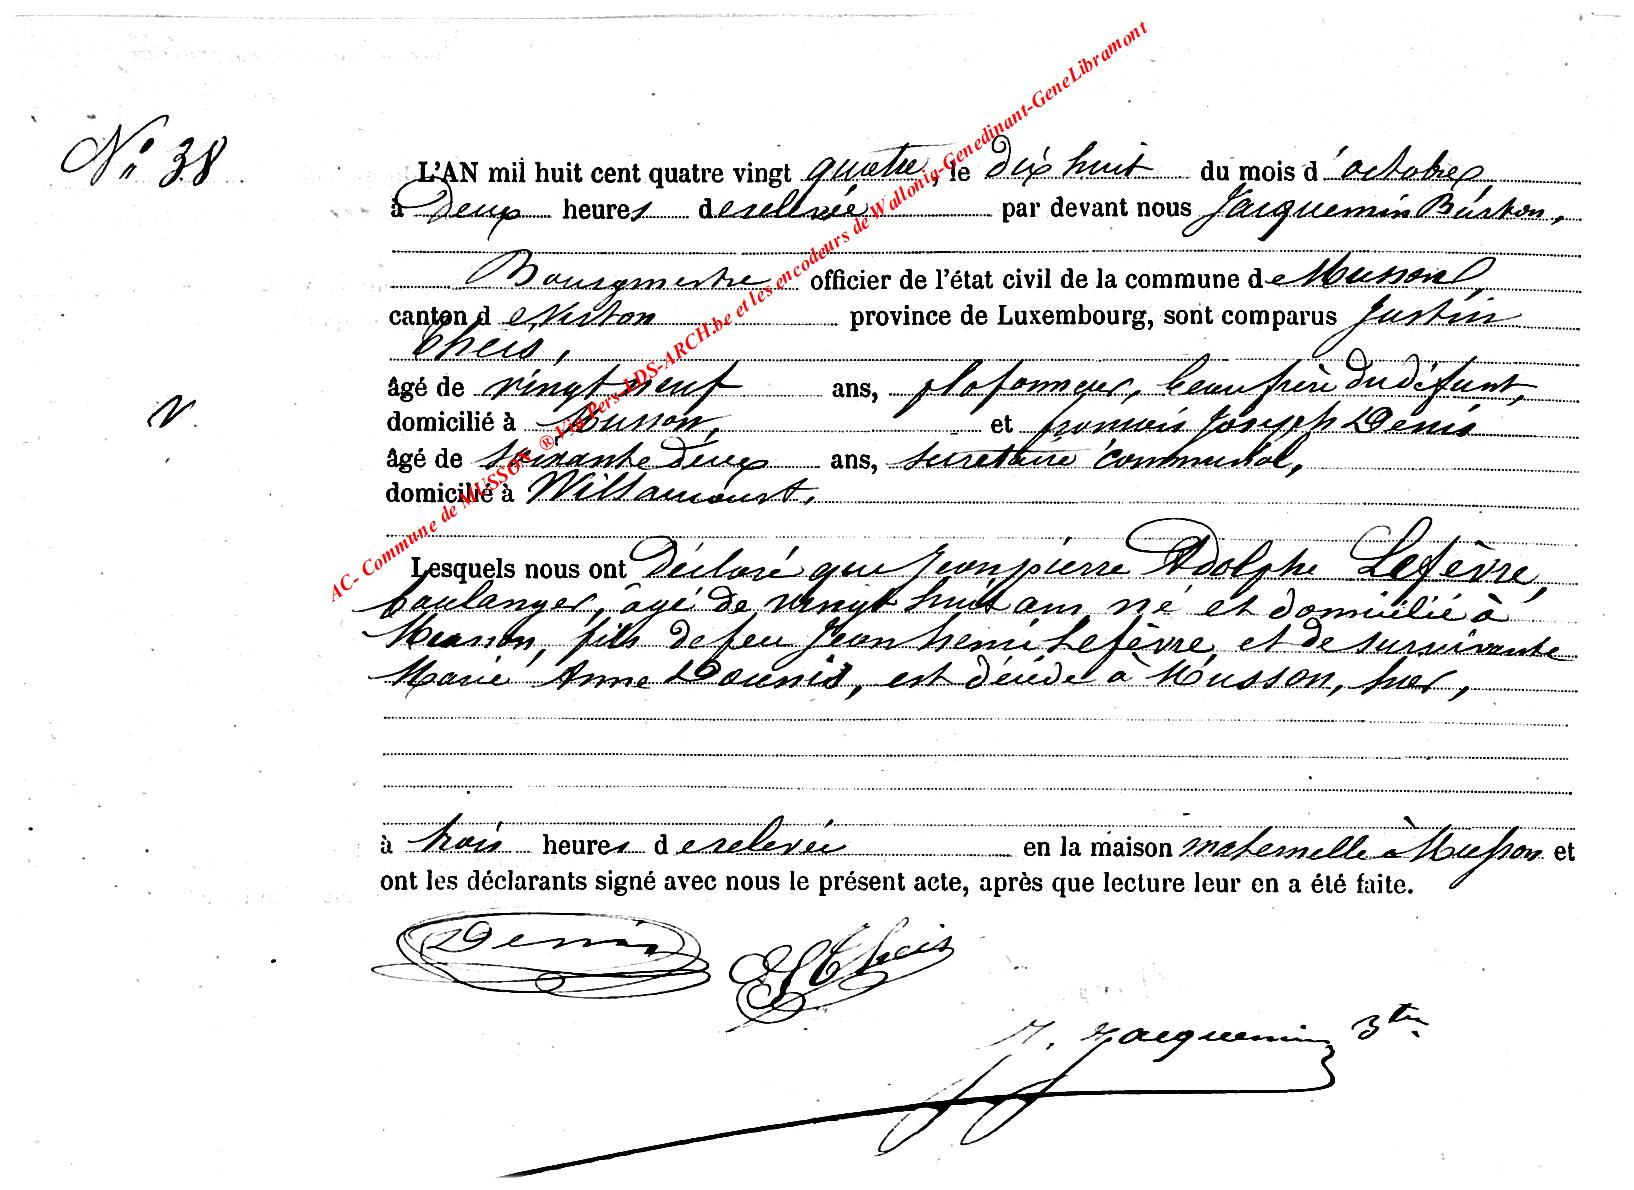 N° 38
L'AN mil huit cent quatre vingt quatre, le dix huit du mois d'octobre,
à Deux heures de relevée par devant nous Jacquemin Burton,
Bourgmestre officier de l'état civil de la commune de Musson,
canton de Virton province de Luxembourg, sont comparus Justin
Theis,
âgé de vingt neuf ans, plafonneur, beau frère du défunt,
domicilié à Musson, et françois Joseph Denis
âgé de soixante deux ans, secrétaire communal,
domicilié à Willancourt.
Lesquels nous ont Déclaré que Jean pierre Adolphe Lefèvre,
boulanger, âgé de vingt huit ans né et domicilié à
Musson, fils de feu Jean henri Lefèvre, et de survivante
Marie Anne, est décédé à Musson, hier,
à trois heures de relevée en la maison maternelle à Musson et
ont les déclarants signé avec nous le présent acte, après que lecture leur en a été faite.
Denis
Theis
Jacquemin
AC- Commune de MUSSON ® Via Pers-LDS-ARCH.be et les encodeurs de Wallonia-Genedinant-GeneLibramont